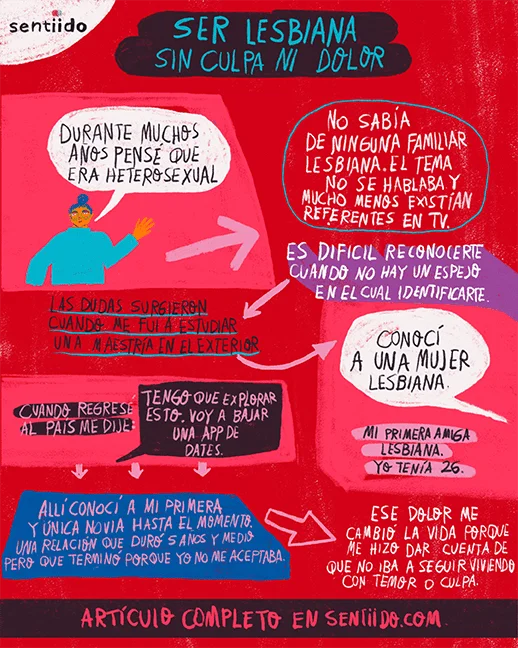 sentiido
SER LESBIANA
SIN CULPA NI DOLOR
DURANTE MUCHOS
AÑOS PENSÉ QUE
ERA HETEROSEXUAL
NO SABÍA
DE NINGUNA FAMILIAR
LESBIANA. EL TEMA
NO SE HABLABA Y
MUCHO MENOS EXISTÍAN
REFERENTES EN TV.
ES DIFICIL RECONOCERTE
CUANDO NO HAY UN ESPEJO
EN EL CUAL IDENTIFICARTE.
LAS DUDAS SURGIERON
CUANDO ME FUI A ESTUDIAR
UNA MAESTRÍA EN EL EXTERIOR
CONOCÍ
A UNA MUJER
LESBIANA.
MI PRIMERA AMIGA
LESBIANA.
YO TENÍA 26.
CUANDO REGRESÉ
AL PAIS ME DIJE:
TENGO QUE EXPLORAR
ESTO. VOY A BAJAR
UNA APP DE
DATES.
ALLÍ CONOCÍ A MI PRIMERA
Y ÚNICA NOVIA HASTA EL MOMENTO.
UNA RELACIÓN QUE DURÓ 5 ANOS Y MEDIO
PERO QUE TERMINÓ PORQUE YO NO ME ACEPTABA.
ESE DOLOR ME
CAMBIÓ LA VIDA PORQUE
ME HIZO DAR CUENTA DE
QUE NO IBA A SEGUIR VIVIENDO
CON TEMOR O CULPA.
ARTÍCULO COMPLETO EN SENTIIDO.COM